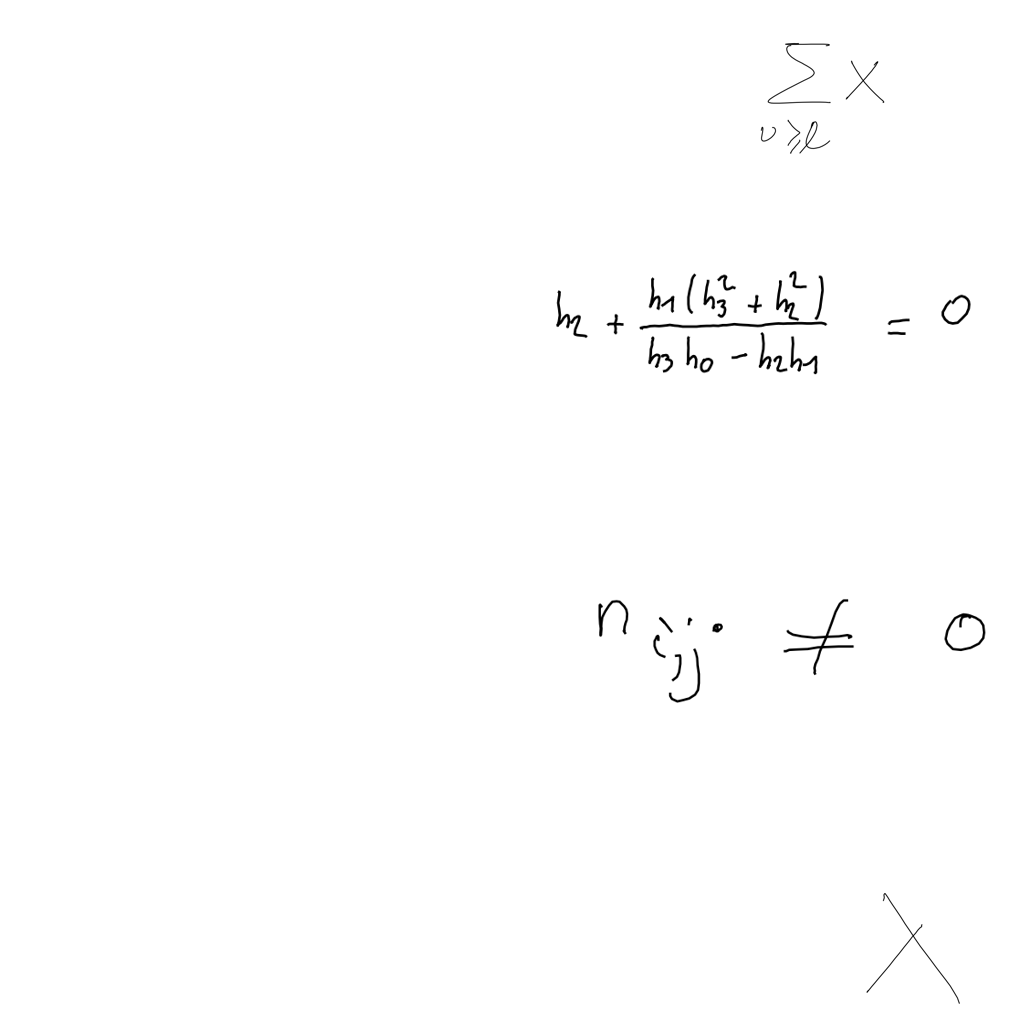 ∑_{v≥l} x
h_2 + \frac{h_1(h_3^2 + h_2^2)}{h_3 h_0 - h_2 h_1} = 0
n_{i,j} \cdot ≠ 0
λ